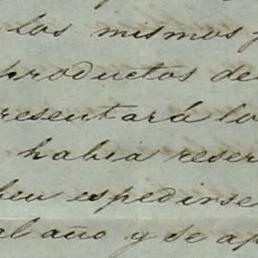 los mismos p
productos de
resentará lo
habia reser
ben espedirse
al año y se ap